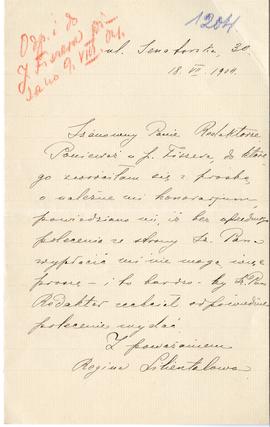 1204
Odp. i do
J. Fiszera pi-
sano 9. VIII 04.
ul. Senatorska, 20.
18. VI. 1904.
Szanowny Panie Redaktorze
Ponieważ u J. Fiszera, do które-
go zwróciłam się z prośbą
o należne mi honoraryum,
powiedziano mi, iż bez
polecenia ze strony Sz. Pana
wypłacić mi nie mogą więc
proszę – i to bardzo – by Sz. Pan
Redaktor zechciał odpowiednie
polecenie wydać.
Z poważaniem
Regina Lilientalowa